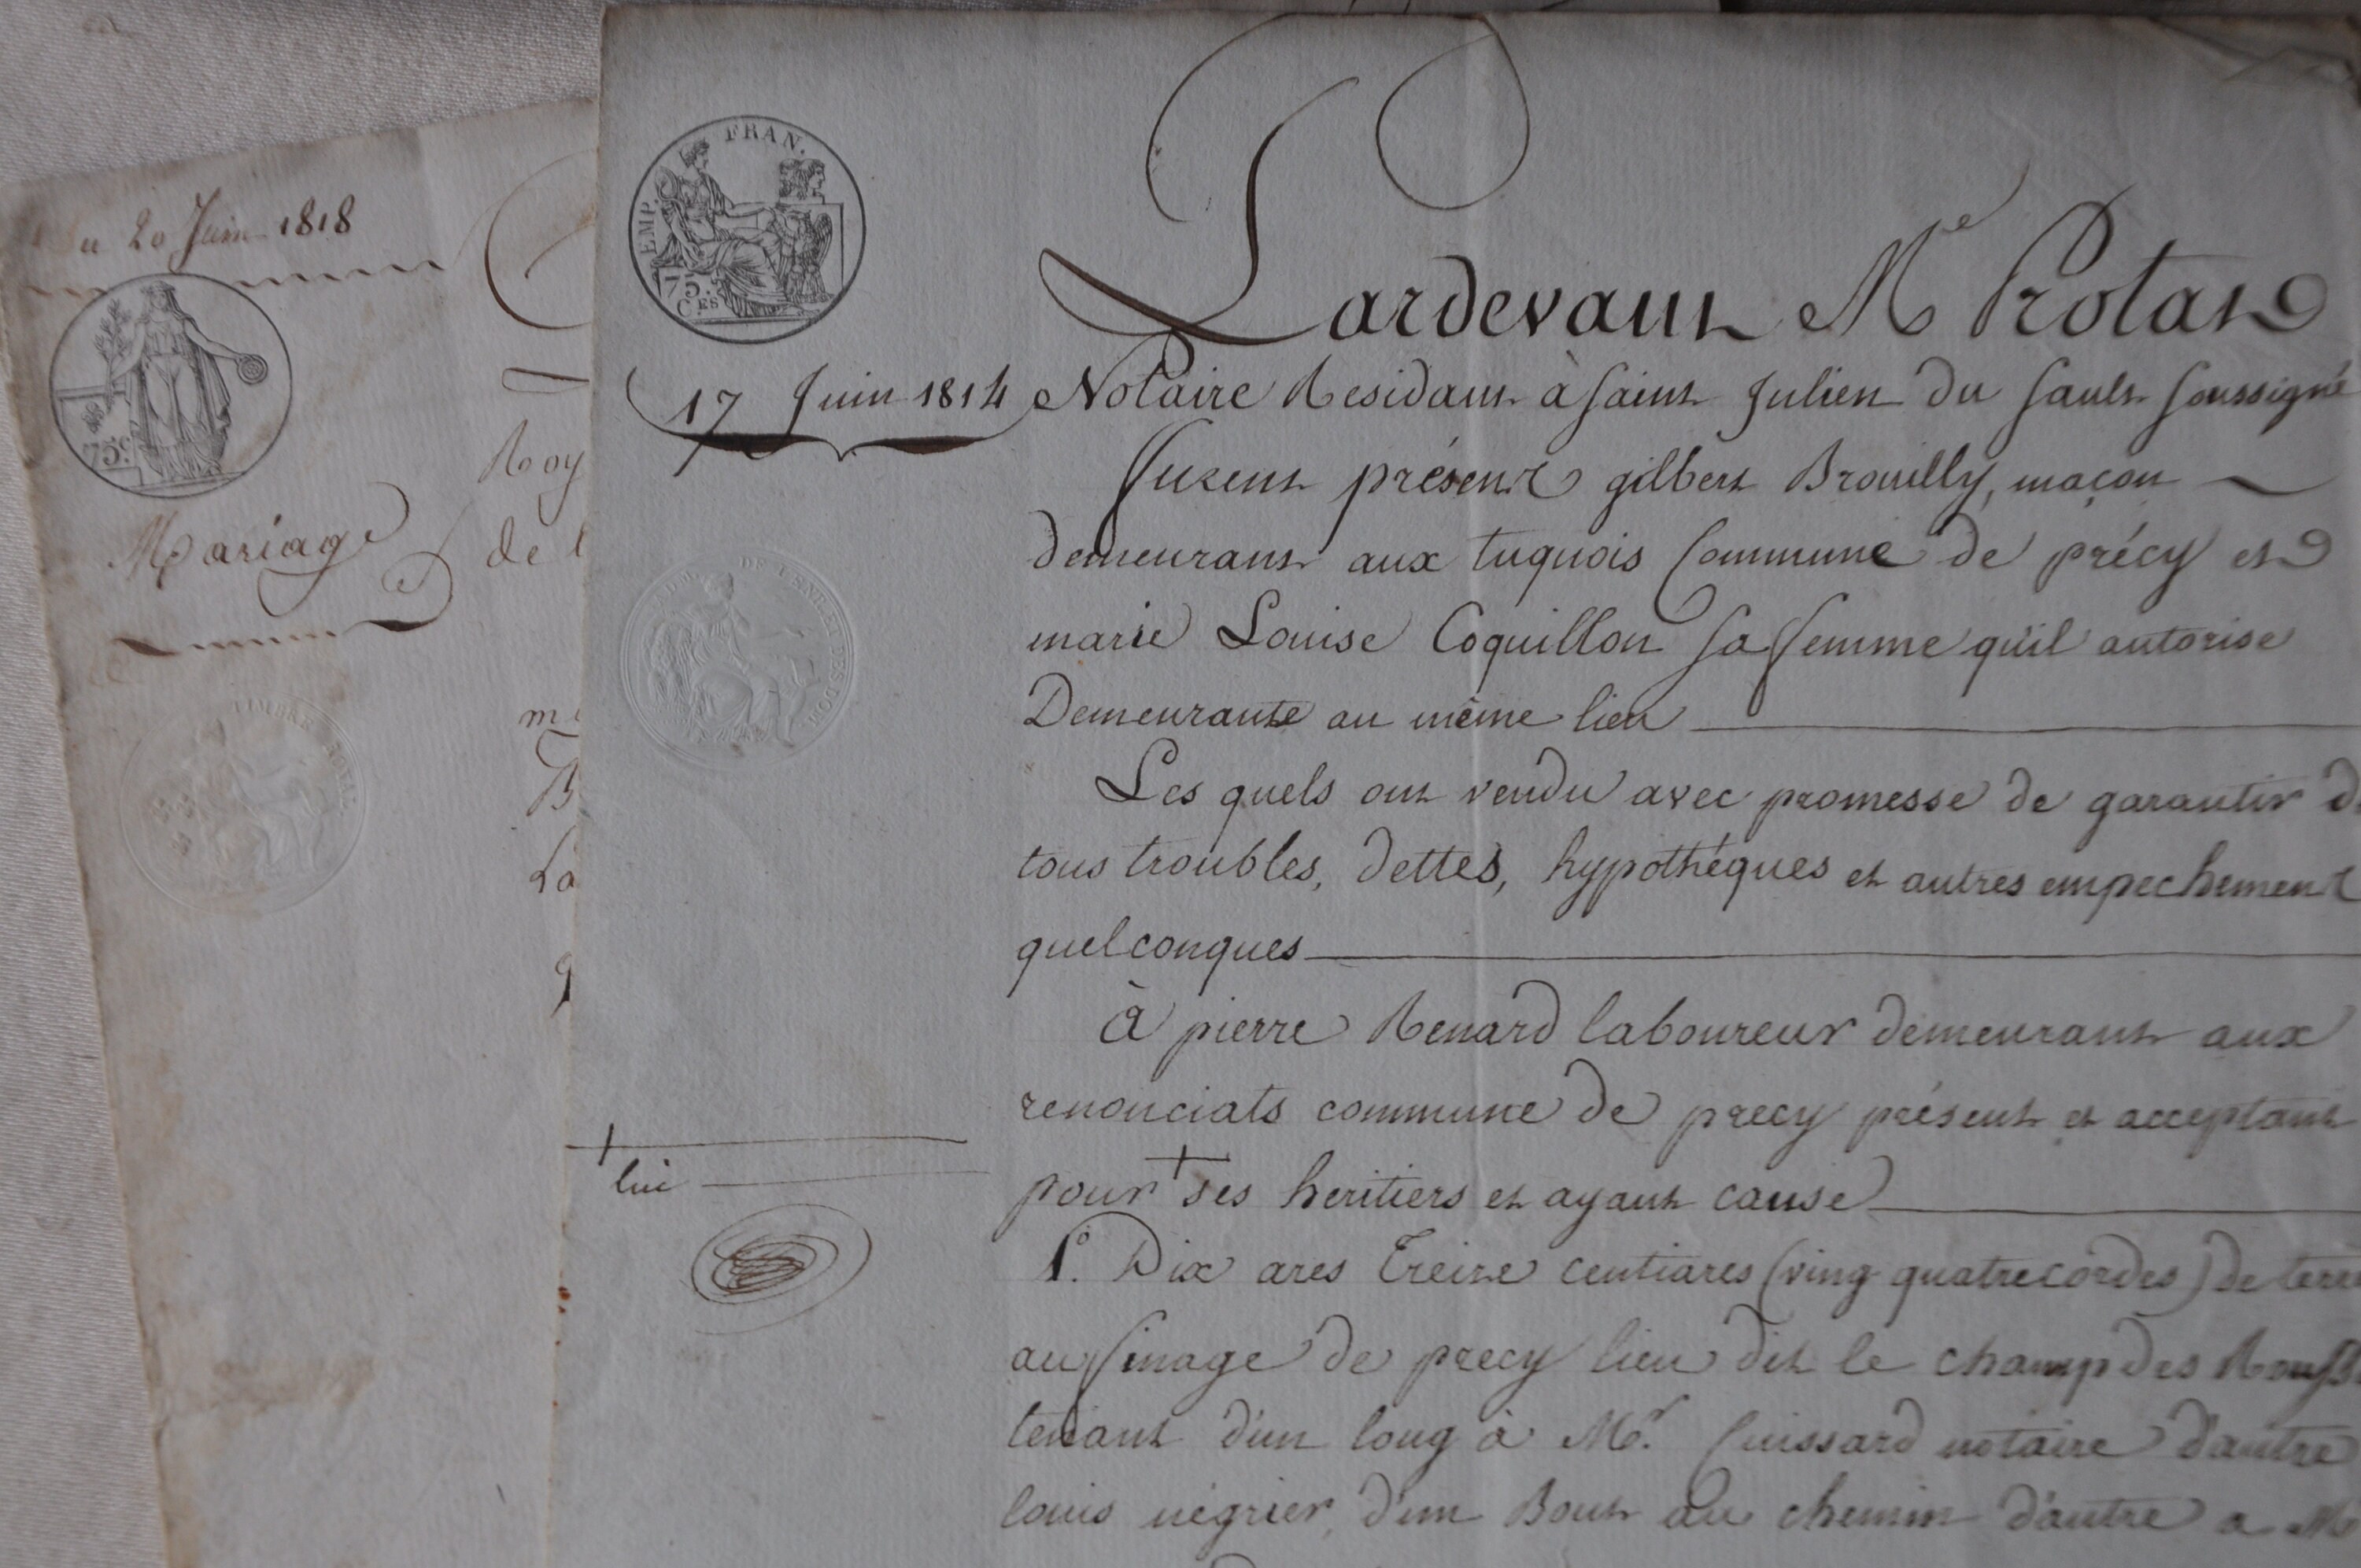 Du 20 Juin 1818
75c.
Mariage
TIMBRE ROYAL
Roy
de l
B
La
q
EMP. FRAN.
75.
C.ES
17 Juin 1814
ADM. DE L'ENREG. ET DES DOM.
Pardevant Me Protat
Notaire Residant à Saint Julien du Sault Soussigné
Furent présent gilbert Brouilly, maçon
demeurant aux tuquois Commune de précy et
marie Louise Coquillon sa femme qu'il autorise
Demeurante au même lieu
Les quels ont vendu avec promesse de garantir d
tous troubles, dettes, hypothéques et autres empechement
quelconques
à pierre Renard laboureur demeurant aux
renonciats commune de precy présent et acceptant
lui
pour ses heritiers et ayant cause
1°. Dix ares Treize centiares (ving quatre cordes) de terre
au finage de precy lieu dit le champ des
tenant d'un long à Mr. Cuissard notaire d'autre
louis négrier, d'un Bout au chemin d'autre a Mr